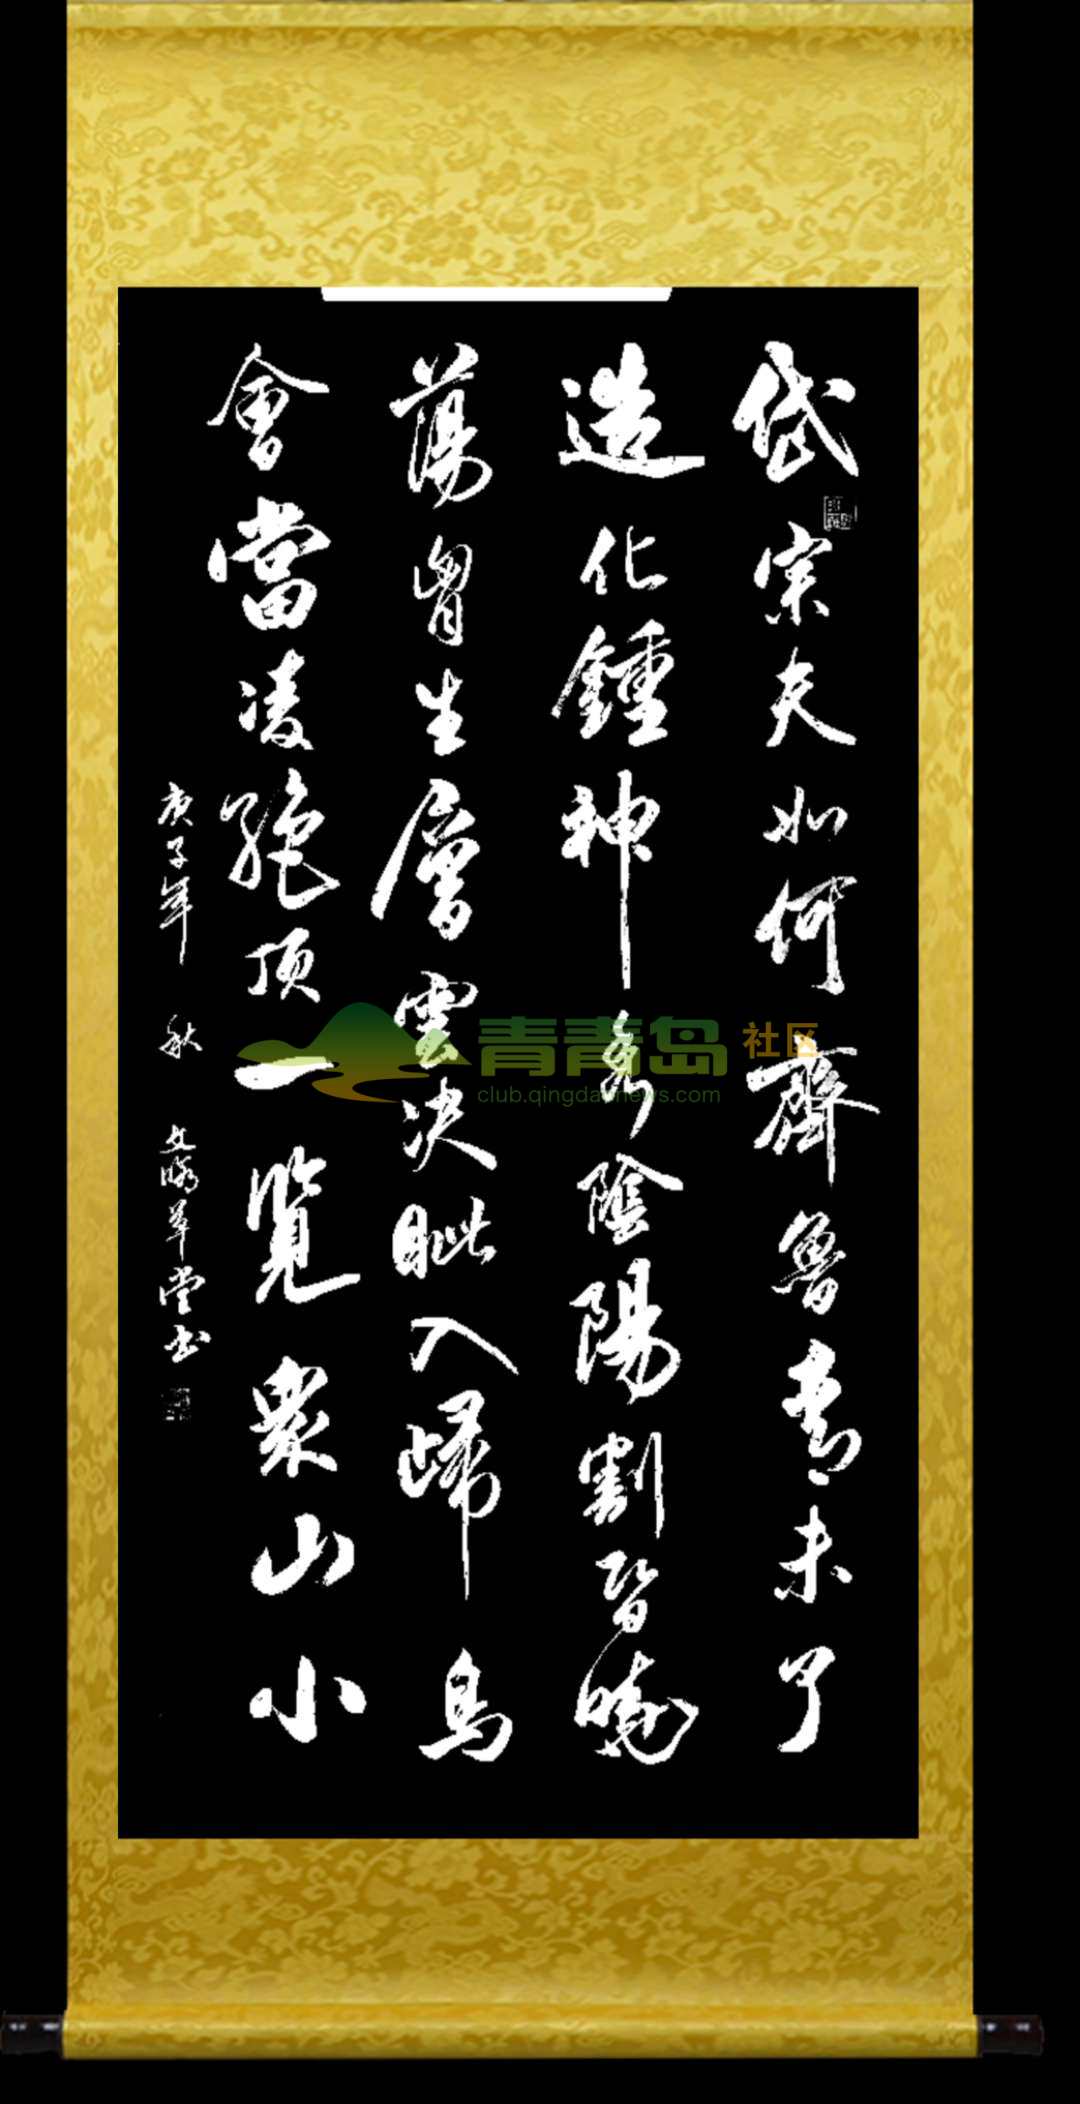 岱宗夫如何齊魯青未了
造化鍾神秀陰陽割皆曉
蕩胷生層雲决眦入歸鳥
會當凌絶頂一覽衆山小
庚子年 秋 文 草堂书
青青岛 社区
club.qingdaonews.com